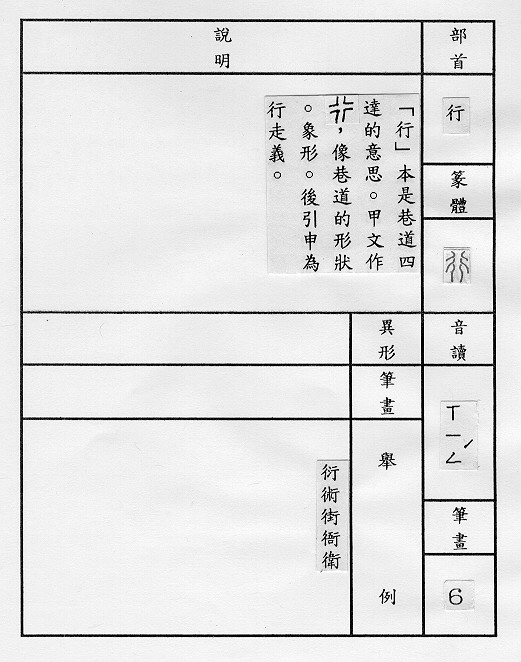 部首
行
篆體
音讀
ㄒㄧㄥˊ
筆畫
6
說明
「行」本是巷道四
達的意思。甲文作
,像巷道的形狀
。象形。後引申為
行走義。
異形
筆畫
舉例
衍術街衙衛